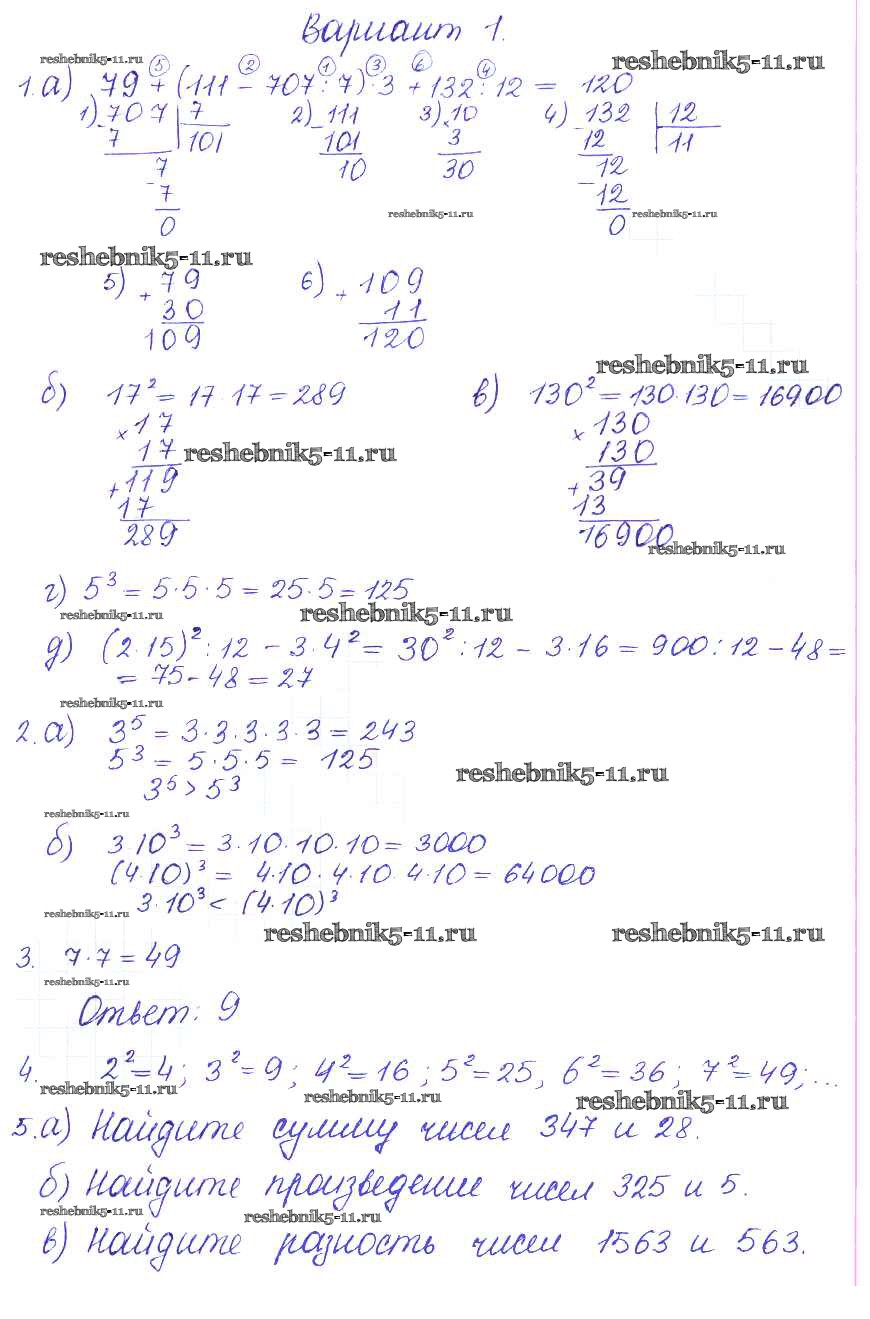 Вариант 1.
reshebnik5-11.ru
reshebnik5-11.ru
⑤ ② ① ③ ⑥ ④
1. а) 79 + (111 - 707 : 7) · 3 + 132 : 12 = 120
1) 707 7 2) 111 3) 10 4) 132 12
- 7 101 - 101 × 3 - 12 11
7 10 30 12
- 7 - 12
0 0
reshebnik5-11.ru reshebnik5-11.ru
reshebnik5-11.ru
5) + 79 6) + 109
30 11
109 120
reshebnik5-11.ru
б) 17² = 17 · 17 = 289 в) 130² = 130 · 130 = 16900
× 17 × 130
17 130
reshebnik5-11.ru
+ 119 + 39
17 13
289 16900
reshebnik5-11.ru
г) 5³ = 5 · 5 · 5 = 25 · 5 = 125
reshebnik5-11.ru reshebnik5-11.ru
д) (2 · 15)² : 12 - 3 · 4² = 30² : 12 - 3 · 16 = 900 : 12 - 48 =
= 75 - 48 = 27
reshebnik5-11.ru
2. а) 3⁵ = 3 · 3 · 3 · 3 · 3 = 243
5³ = 5 · 5 · 5 = 125
reshebnik5-11.ru
3⁵ > 5³
reshebnik5-11.ru
б) 3 · 10³ = 3 · 10 · 10 · 10 = 3000
(4 · 10)³ = 4 · 10 · 4 · 10 · 4 · 10 = 64000
3 · 10³ < (4 · 10)³
reshebnik5-11.ru
reshebnik5-11.ru reshebnik5-11.ru
3. 7 · 7 = 49
reshebnik5-11.ru
Ответ: 9
4. 2² = 4; 3² = 9; 4² = 16; 5² = 25, 6² = 36; 7² = 49; ...
reshebnik5-11.ru reshebnik5-11.ru reshebnik5-11.ru
5. а) Найдите сумму чисел 347 и 28.
б) Найдите произведение чисел 325 и 5.
reshebnik5-11.ru reshebnik5-11.ru
в) Найдите разность чисел 1563 и 563.